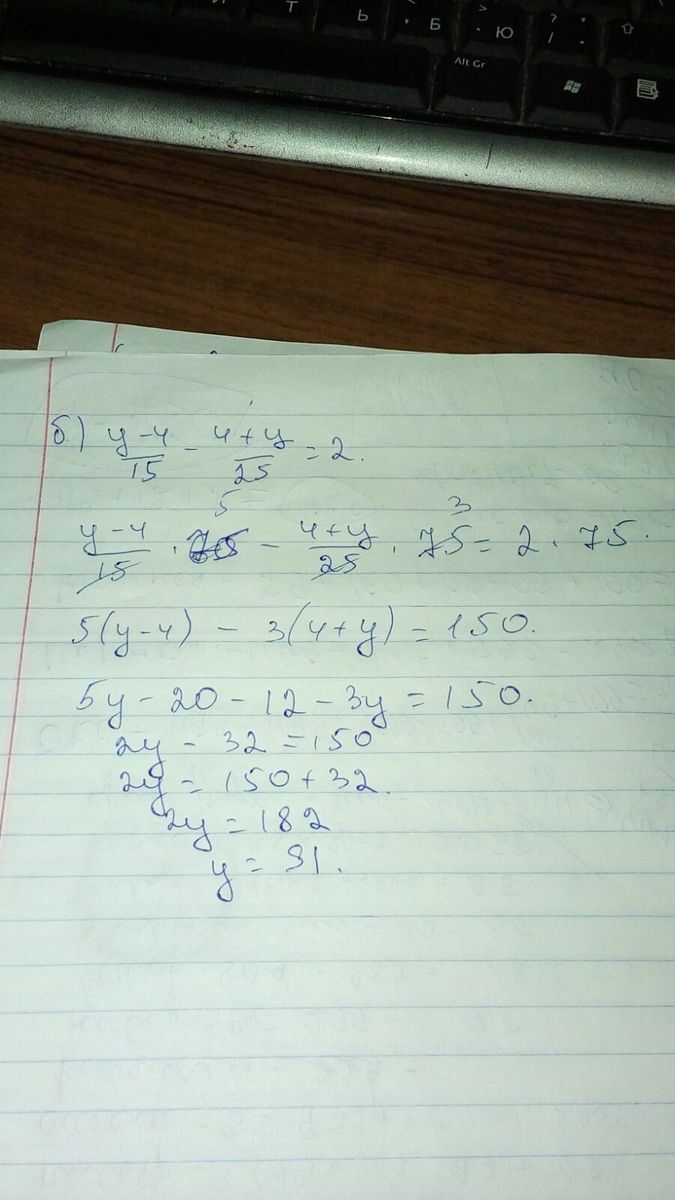 Т Ь Б Ю ? / .
Alt Gr
б) y-4/15 - 4+y/25 = 2.
5 3
y-4/15 · 75 - 4+y/25 · 75 = 2 · 75.
5(y-4) - 3(4+y) = 150.
5y - 20 - 12 - 3y = 150.
2y - 32 = 150
2y = 150 + 32.
2y = 182
y = 91.